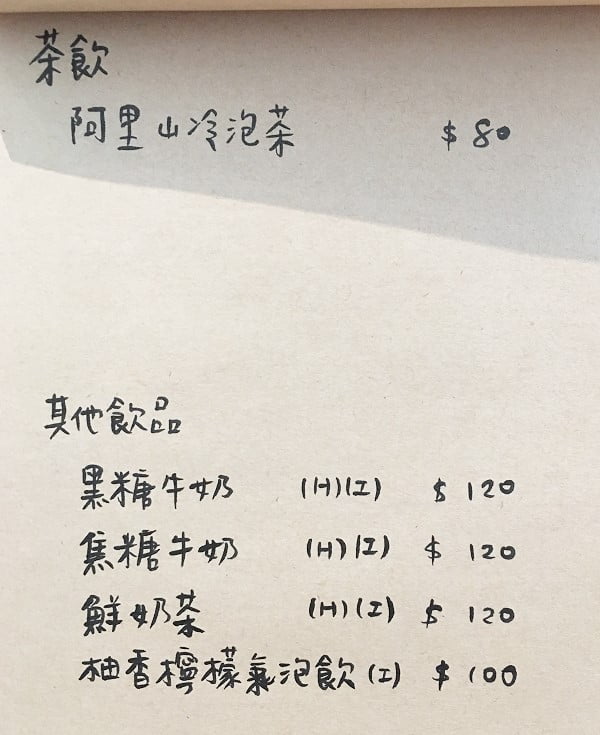 茶飲
阿里山冷泡茶 $80
其他飲品
黑糖牛奶 (H)(I) $ 120
焦糖牛奶 (H)(I) $ 120
鮮奶茶 (H)(I) $ 120
柚香檸檬氣泡飲(I) $ 100